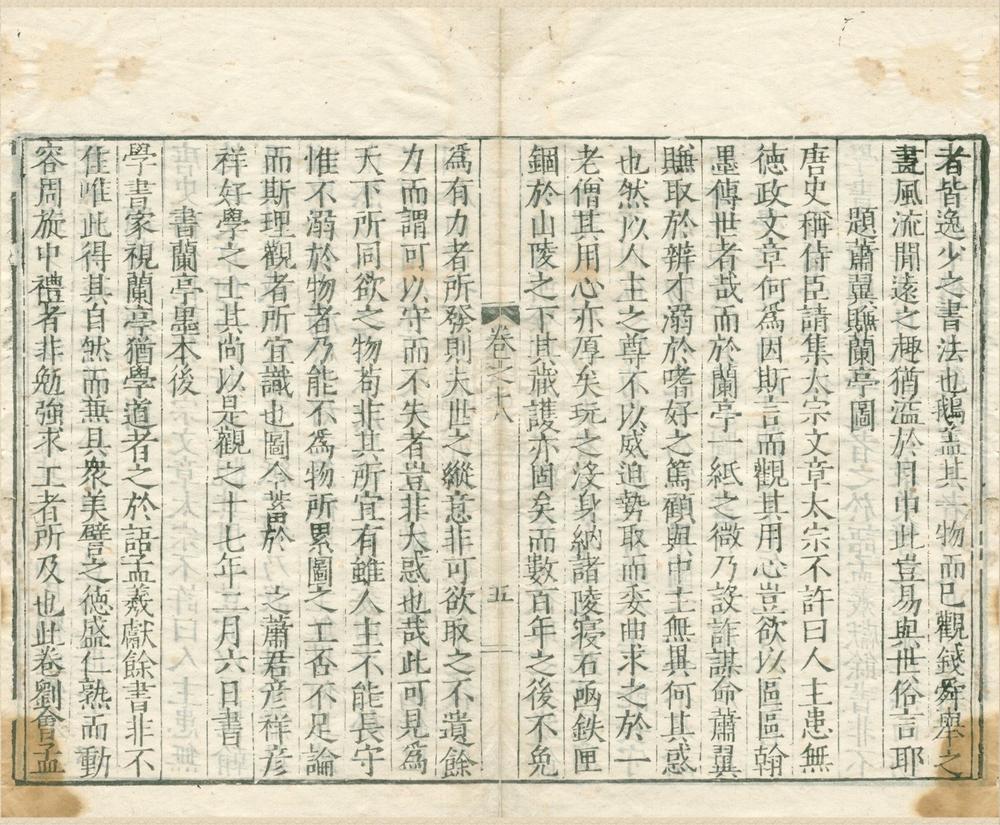 者皆逸少之書法也鵝盖其一物而已觀錢舜舉之
畫風流閒遠之趣猶溢於目中此豈易與世俗言耶
題蕭翼賺蘭亭圖
唐史稱侍臣請集太宗文章太宗不許曰人主患無
徳政文章何爲因斯言而觀其用心豈欲以區區翰
墨傳世者哉而於蘭亭一紙之微乃設詐謀命蕭翼
賺取於辨才溺於嗜好之篤顧與中士無異何其惑
也然以人主之尊不以威迫勢取而委曲求之於一
老僧其用心亦厚矣玩之沒身納諸陵寢石凾鉄匣
錮於山陵之下其蔵䕶亦固矣而數百年之後不免
卷之十八
五
爲有力者所發則夫世之縱意非可欲取之不遺餘
力而謂可以守而不失者豈非大惑也哉此可見爲
天下所同欲之物苟非其所宜有雖人主不能長守
惟不溺於物者乃能不爲物所累圖之工否不足論
而斯理觀者所宜識也圖今藏於之蕭君彦祥彦
祥好學之士其尚以是觀之十七年二月六日書
書蘭亭墨本後
學書家視蘭亭猶學道者之於語孟羲獻餘書非不
佳唯此得其自然而兼具衆美譬之徳盛仁熟而動
容周旋中禮者非勉強求工者所及也此卷劉會孟